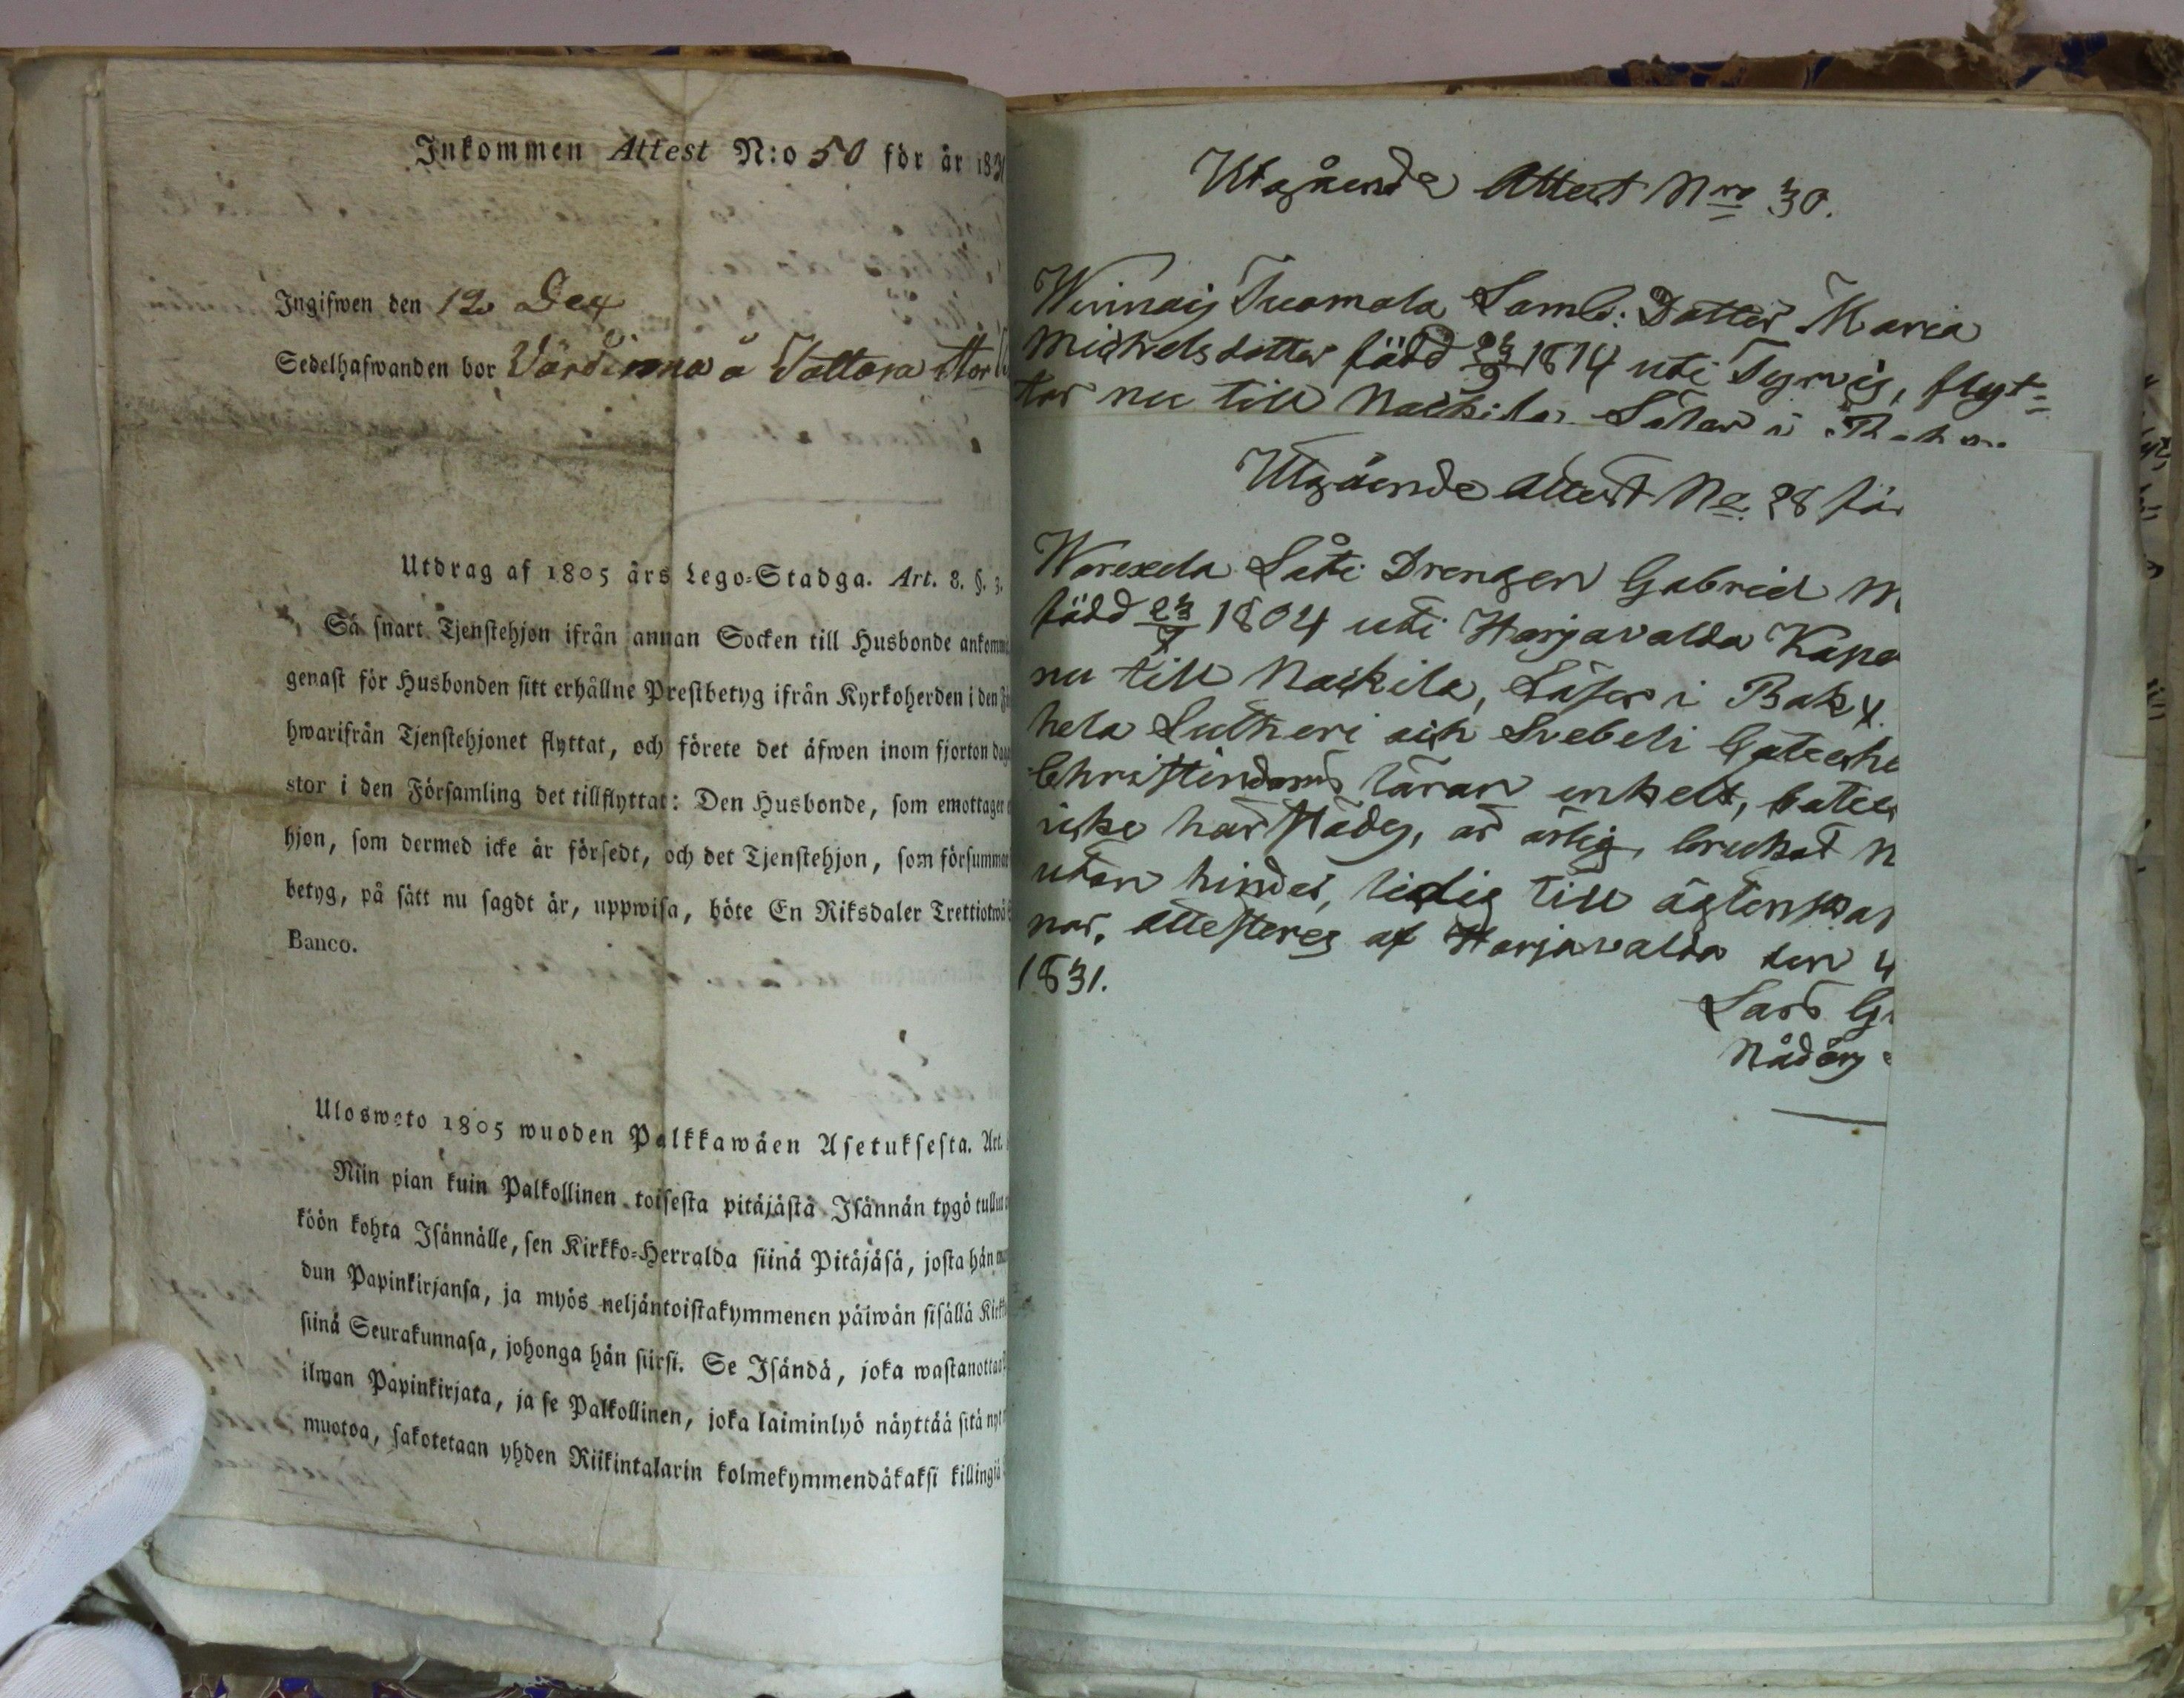 Inkommen Attest N:o 50 för år 183
Ingifwen den 12 Dec
Sedelhafwanden bor Värdinna å Vattara
Utdrag af 1805 års Lego-Stadga. Art. 8. §. 3.
Så snart Tjenstehjon ifrån annan Socken till Husbonde ankomm
genast för Husbonden sitt erhållne Prestbetyg ifrån Kyrkoherden i den
hwarifrån Tjenstehjonet flyttat, och förete det äfwen inom fjorton dag
stor i den Församling det tillflyttat: Den Husbonde, som emottager
hjon, som dermed icke är försedt, och det Tjenstehjon, som försummar
betyg, på sätt nu sagdt är, uppwisa, böte En Riksdaler Trettiotwå
Banco.
Ulosweto 1805 wuoden Palkkawäen Asetuksesta. Art.
Niin pian kuin Palkollinen toisesta pitäjästä Isännän tygö tullut
köön kohta Isännälle, sen Kirkko-Herralda siinä Pitäjäsä, josta hän
dun Papinkirjansa, ja myös neljäntoistakymmenen päiwän sisällä Kirk
siinä Seurakunnasa, johonga hän siirsi. Se Isändä, joka wastanottaa
ilman Papinkirjata, ja se Palkollinen, joka laiminlyö näyttää sitä nyt
muotoa, sakotetaan yhden Riikintalarin kolmekymmendäkaksi killingiä
Utgående Attest Nro 30.
Tuomola Dotter Maria
Michelsdotter född 1814 uti Tyrvis, flyt-
tar nu till Nackila
Utgående Attest No. 28 för
Låti Drengen Gabriel M
född 23 1804 uti Harjavalda Kape
nu till Nackila, Läser i Bok
hela Lutheri och Svebeli Cateche
Christendoms läran enkelt,
icke härstädes, är ärlig, brukat N
utan hinder, ledig till ägtenskap
nar, attesteres af Harjavalda den 4
1831.
Lars G
Nådårs